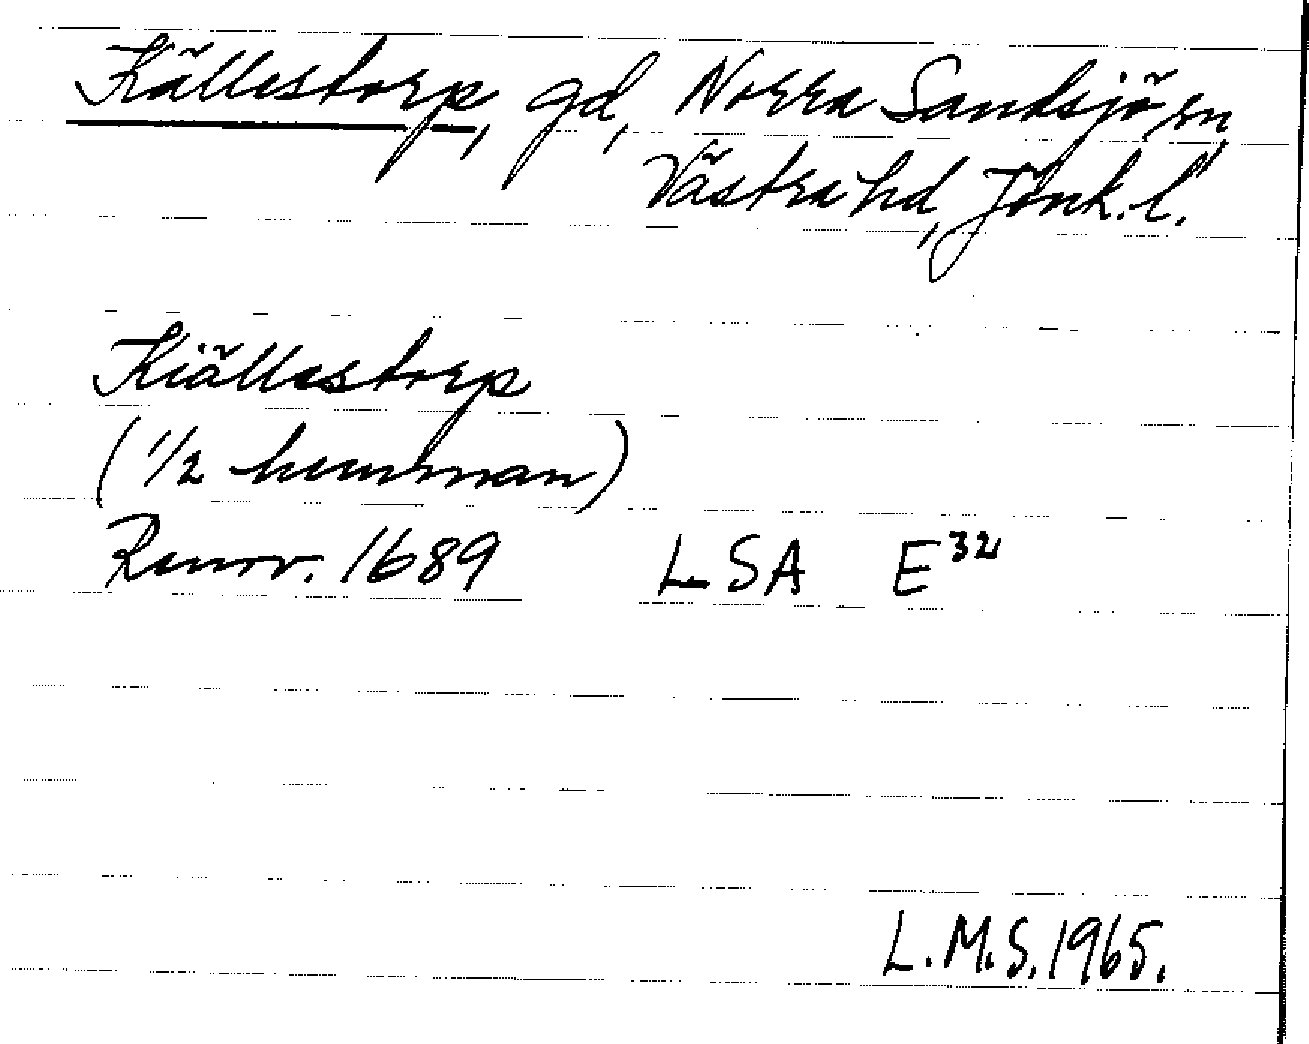 Källestorp, gd, Norra Sandsjö sn
Västra hd, Jönk. l.
Kiällestorp
(1/2 hemman)
Renov. 1689 LSA E³²
L.M.S. 1965.